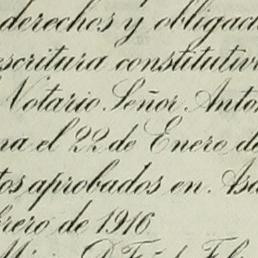 derechos y obligaci
escritura constitutiv
Notario Señor Anto
na el 22 de Enero de
tos aprobados en Asa
brero de 1916